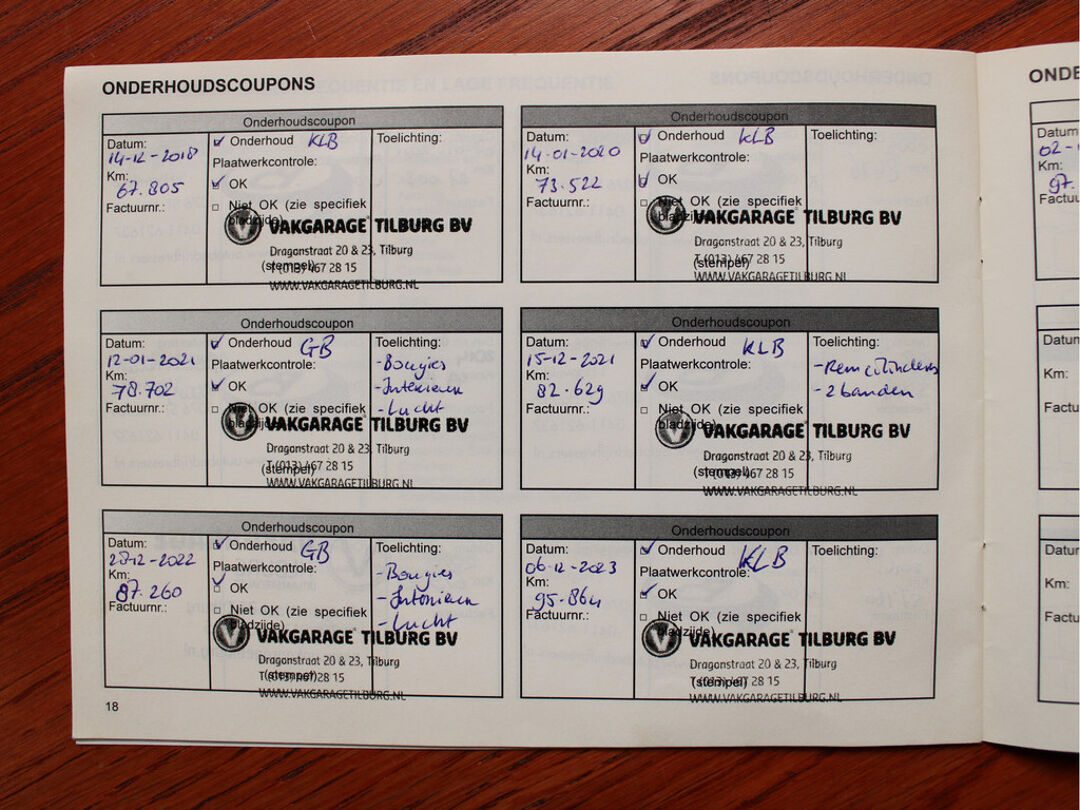 ONDERHOUDSCOUPONS
Onderhoudscoupon
Datum:
14-12-2018
Km:
67.805
Factuurnr.:
Onderhoud KLB
Plaatwerkcontrole:
OK
Niet OK (zie specifiek
bladzijde)
Toelichting:
VAKGARAGE TILBURG BV
Dragonstraat 20 & 23, Tilburg
(stempel)
T (013) 467 28 15
WWW.VAKGARAGETILBURG.NL
Onderhoudscoupon
Datum:
14-01-2020
Km:
73.522
Factuurnr.:
Onderhoud KLB
Plaatwerkcontrole:
OK
Niet OK (zie specifiek
bladzijde)
Toelichting:
VAKGARAGE TILBURG BV
Dragonstraat 20 & 23, Tilburg
(stempel)
T (013) 467 28 15
WWW.VAKGARAGETILBURG.NL
Onderhoudscoupon
Datum:
12-01-2021
Km:
78.702
Factuurnr.:
Onderhoud GB
Plaatwerkcontrole:
OK
Niet OK (zie specifiek
bladzijde)
Toelichting:
- Bougies
- Lucht
VAKGARAGE TILBURG BV
Dragonstraat 20 & 23, Tilburg
(stempel)
T (013) 467 28 15
WWW.VAKGARAGETILBURG.NL
Onderhoudscoupon
Datum:
15-12-2021
Km:
82.629
Factuurnr.:
Onderhoud KLB
Plaatwerkcontrole:
OK
Niet OK (zie specifiek
bladzijde)
Toelichting:
- Remcilinders
- 2 banden
VAKGARAGE TILBURG BV
Dragonstraat 20 & 23, Tilburg
(stempel)
T (013) 467 28 15
WWW.VAKGARAGETILBURG.NL
Onderhoudscoupon
Datum:
Km:
87.260
Factuurnr.:
Onderhoud GB
Plaatwerkcontrole:
OK
Niet OK (zie specifiek
bladzijde)
Toelichting:
- Bougies
- Lucht
VAKGARAGE TILBURG BV
Dragonstraat 20 & 23, Tilburg
(stempel)
T (013) 467 28 15
WWW.VAKGARAGETILBURG.NL
Onderhoudscoupon
Datum:
06-12-2023
Km:
95.864
Factuurnr.:
Onderhoud KLB
Plaatwerkcontrole:
OK
Niet OK (zie specifiek
bladzijde)
Toelichting:
VAKGARAGE TILBURG BV
Dragonstraat 20 & 23, Tilburg
(stempel)
T (013) 467 28 15
WWW.VAKGARAGETILBURG.NL
18
ONDE
Datum
02-
Km:
97.
Factuu
Datun
Km:
Factu
Datur
Km:
Factu